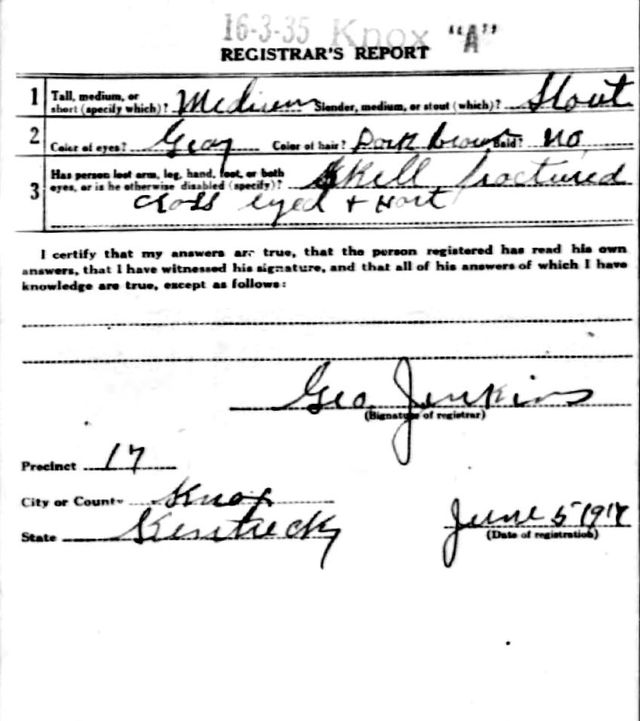 16-3-35 Knox "A"
REGISTRAR'S REPORT
1 Tall, medium, or short (specify which)? Medium Slender, medium, or stout (which)? Stout
2 Color of eyes? Gray Color of hair? Dark brown Bald? no
3 Has person lost arm, leg, hand, foot, or both eyes, or is he otherwise disabled (specify)? Skull fractured
cross eyed +
I certify that my answers are true, that the person registered has read his own
answers, that I have witnessed his signature, and that all of his answers of which I have
knowledge are true, except as follows:
Geo Jenkins
(Signature of registrar)
Precinct 17
City or County Knox
State Kentucky
June 5 1917
(Date of registration)